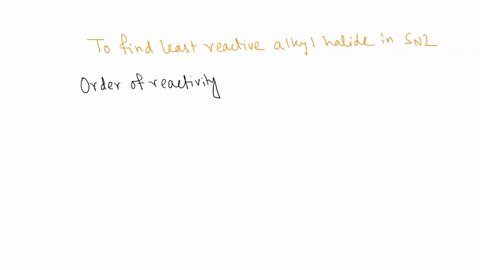 To find least reactive alkyl halide in SN2
Order of reactivity